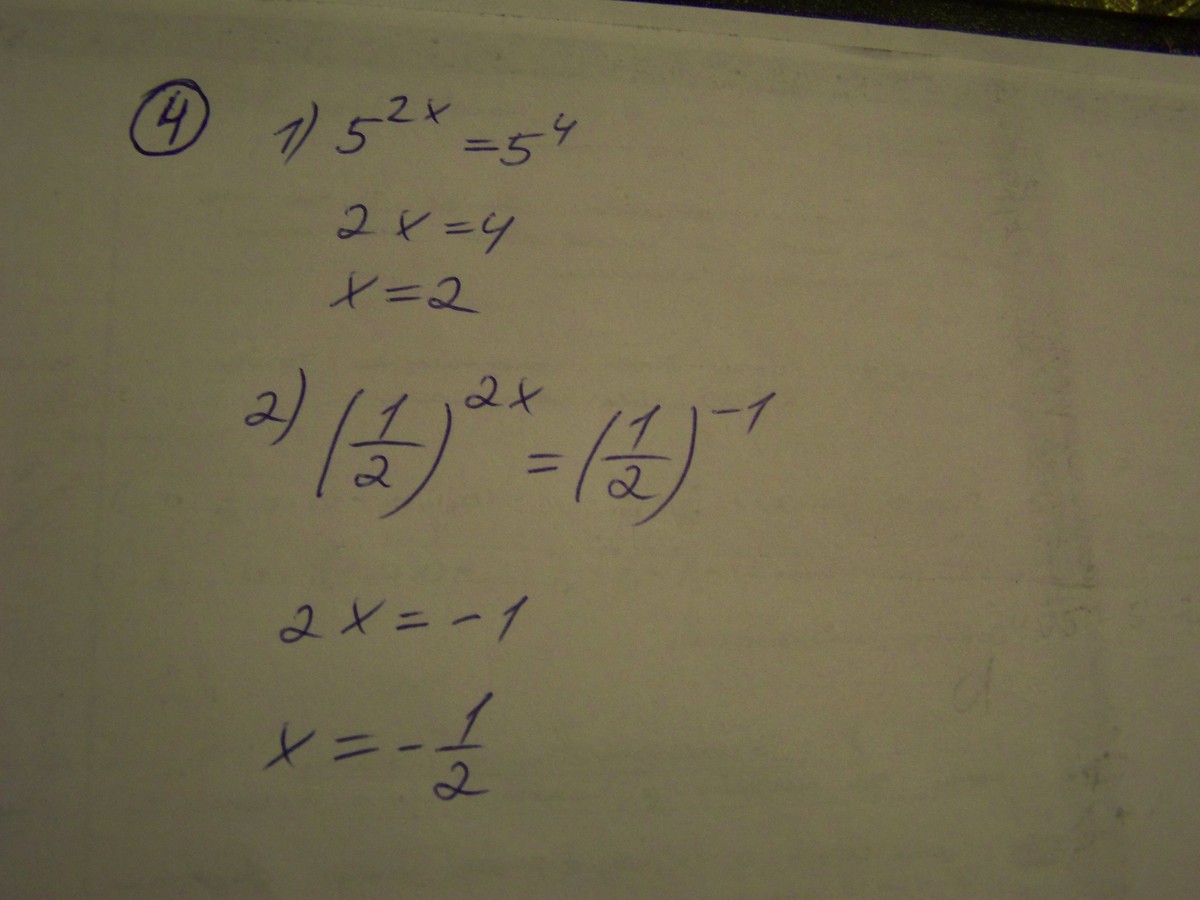 ④ 1) 5^{2x} = 5^4
2x = 4
x = 2
2) (1/2)^{2x} = (1/2)^{-1}
2x = -1
x = -1/2